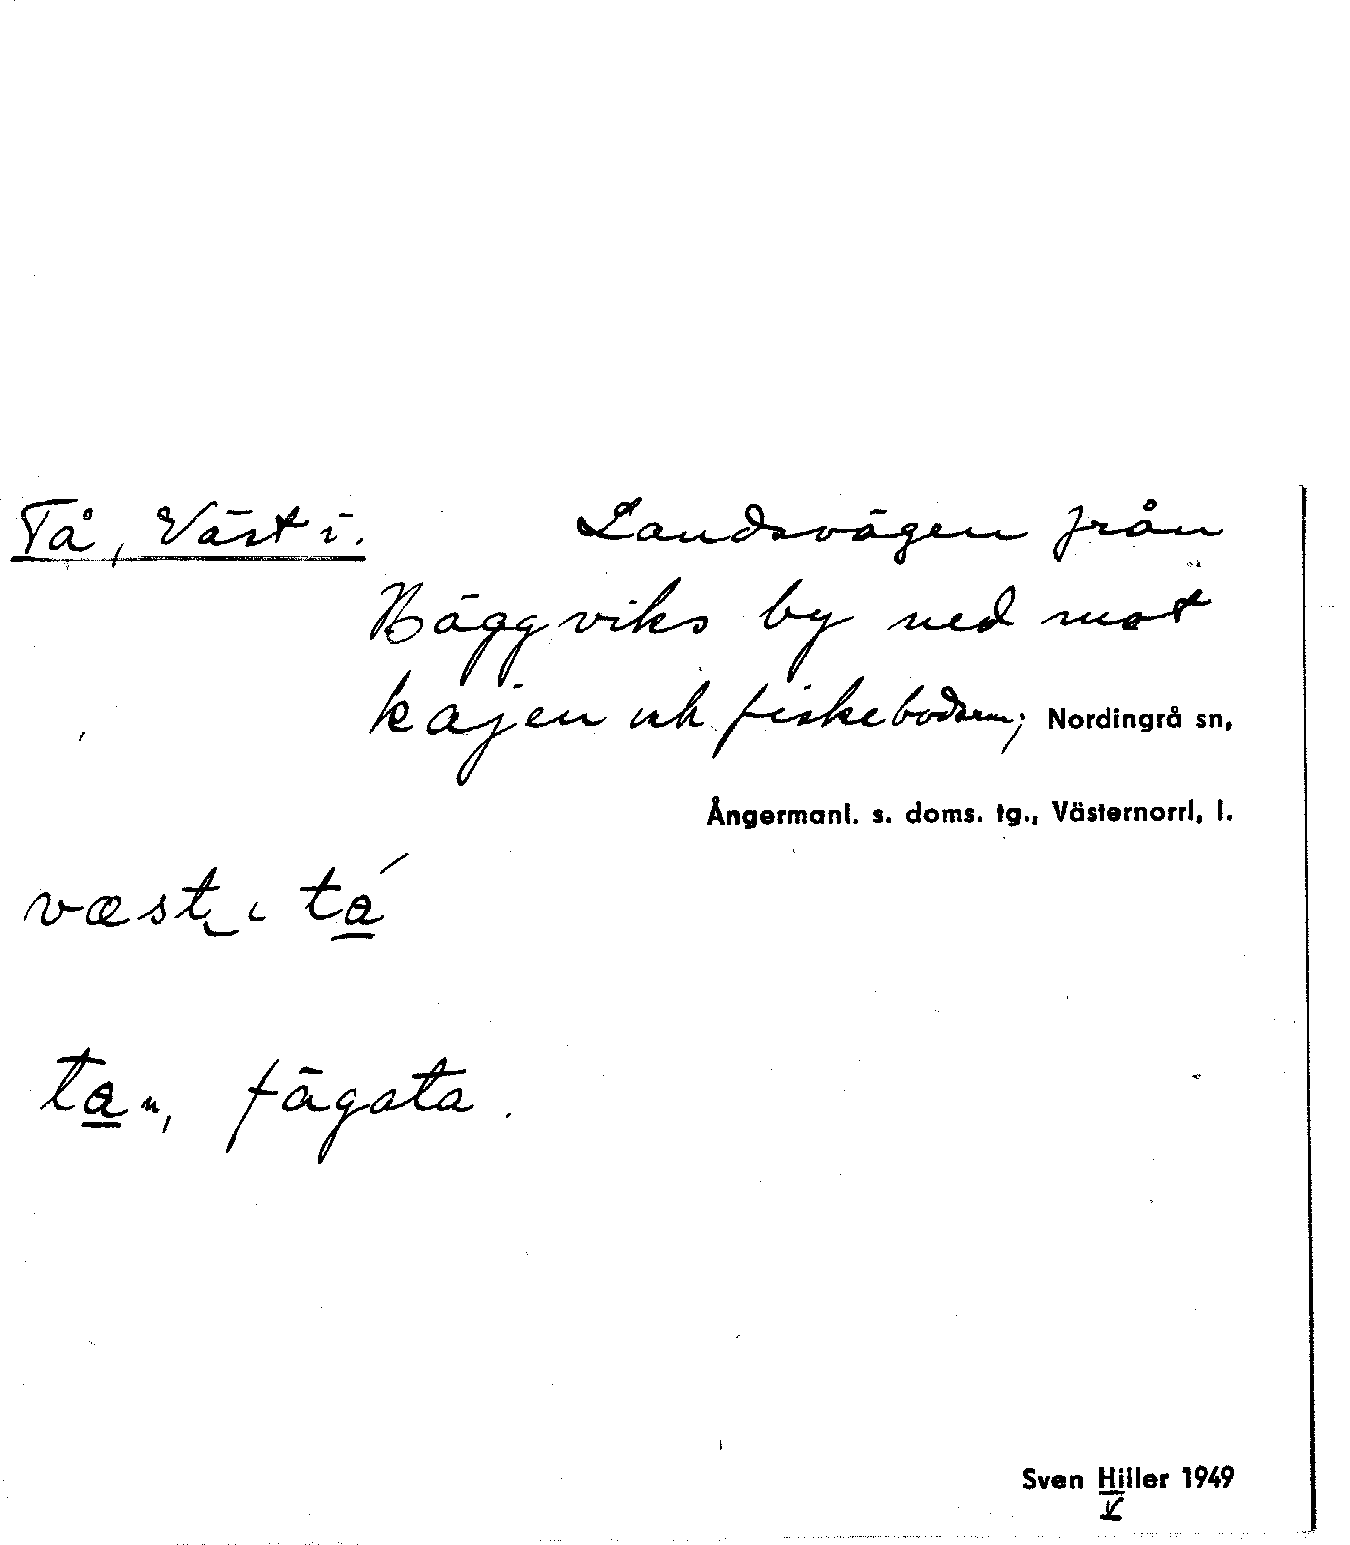 Tå, Väst i. Landsvägen från
Häggviks by ned mot
kajen och fiskebodarna; Nordingrå sn,
Ångermanl. s. doms. tg., Västernorrl, l.
væst i tá
tan, fägata.
Sven Hiller 1949
V